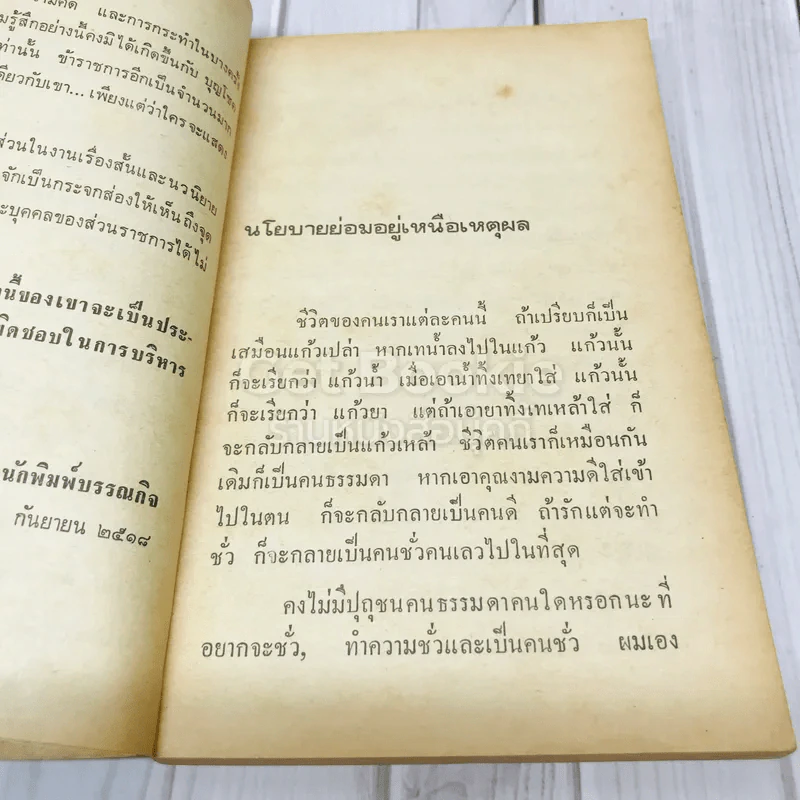 ความคิด และการกระทำในบางครั้ง
รู้สึกอย่างนี้คงมิได้เกิดขึ้นกับ บุญโชค
ท่านั้น ข้าราชการอีกเป็นจำนวนมาก
ดียวกับเขา... เพียงแต่ว่าใครจะแสดง
ส่วนในงานเรื่องสั้นและนวนิยาย
จักเป็นกระจกส่องให้เห็นถึงจุด
ะบุคคลของส่วนราชการได้ไม่
นี้ของเขาจะเป็นประ-
ผิดชอบในการบริหาร
นักพิมพ์บรรณกิจ
กันยายน ๒๕๑๘
นโยบายย่อมอยู่เหนือเหตุผล
ชีวิตของคนเราแต่ละคนนี้ ถ้าเปรียบก็เป็น
เสมือนแก้วเปล่า หากเทน้ำลงไปในแก้ว แก้วนั้น
ก็จะเรียกว่า แก้วน้ำ เมื่อเอาน้ำทิ้งเทยาใส่ แก้วนั้น
ก็จะเรียกว่า แก้วยา แต่ถ้าเอายาทิ้งเทเหล้าใส่ ก็
จะกลับกลายเป็นแก้วเหล้า ชีวิตคนเราก็เหมือนกัน
เดิมก็เป็นคนธรรมดา หากเอาคุณงามความดีใส่เข้า
ไปในตน ก็จะกลับกลายเป็นคนดี ถ้ารักแต่จะทำ
ชั่ว ก็จะกลายเป็นคนชั่วคนเลวไปในที่สุด
คงไม่มีปุถุชนคนธรรมดาคนใดหรอกนะ ที่
อยากจะชั่ว, ทำความชั่วและเป็นคนชั่ว ผมเอง
Get Bookie
ร้านหนังสือลูกตุ๊ก